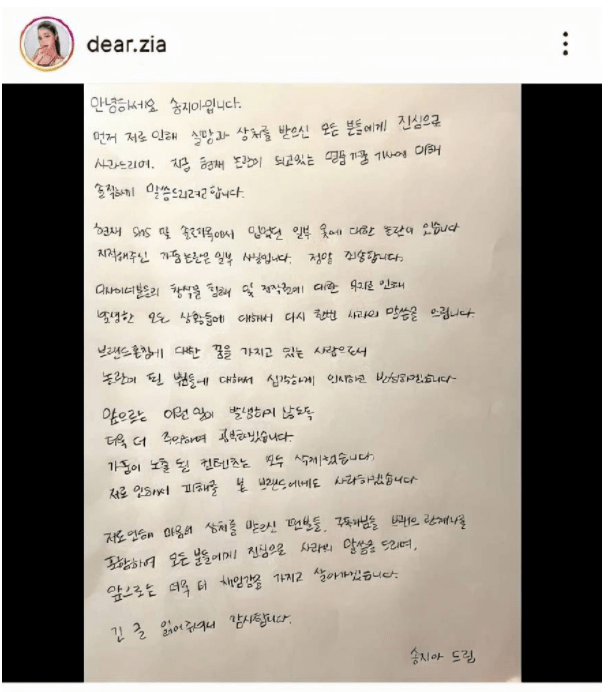 dear.zia
안녕하세요 송지아입니다.
먼저 저로 인해 실망과 상처를 받으신 모든 분들에게 진심으로
사과드리며, 지금 현재 논란이 되고있는 명품가품 기사에 대해
솔직하게 말씀드리려고합니다.
현재 SNS 및 솔로지옥에서 입었던 일부 옷에 대한 논란이 있습니다
지적해주신 가품논란은 일부 사실입니다. 정말 죄송합니다.
디자이너분들의 창작물 침해 및 저작권에 대한 무지로 인해
발생한 모든 상황들에 대해서 다시 한번 사과의 말씀을 드립니다.
브랜드론칭에 대한 꿈을 가지고 있는 사람으로서
논란이 된 부분들에 대해서 심각하게 인지하고 반성하겠습니다
앞으로는 이런 일이 발생하지 않도록
더욱 더 주의하며 공부하겠습니다.
가품이 노출 된 컨텐츠는 모두 삭제했습니다.
저로 인해서 피해를 본 브랜드에게도 사과하겠습니다
저로인해 마음의 상처를 받으신 팬분들, 구독자님들 브랜드 관계자를
포함하여 모든 분들에게 진심으로 사과의 말씀을 드리며,
앞으로는 더욱 더 책임감을 가지고 살아가겠습니다.
긴 글 읽어주셔서 감사합니다.
송지아 드림